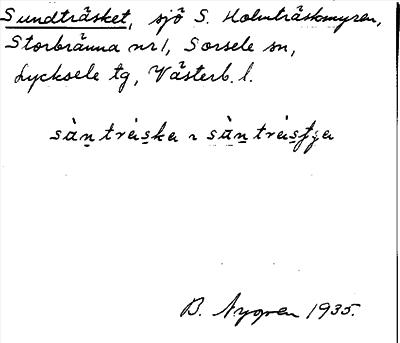 Sundträsket, sjö S. Holmträskmyren,
Storbränna nr 1, Sorsele sn,
Lycksele tg, Västerb. l.
sàn̲ trȧis̲ka ~ sàn̲ trȧis̲tja
B. Nygren 1935.